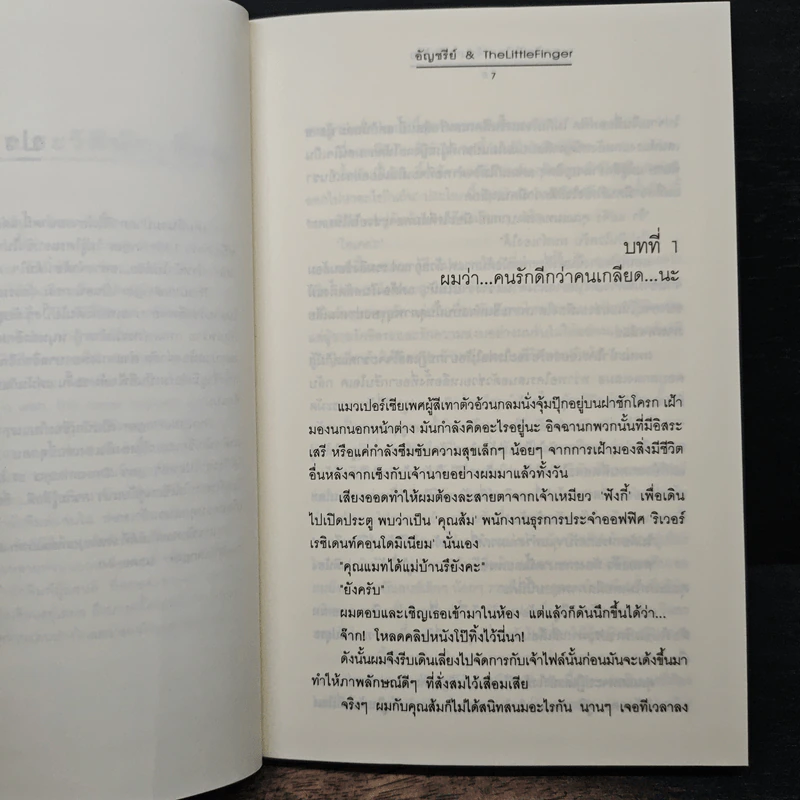 อัญชรีย์ & TheLittleFinger
7
บทที่ 1
ผมว่า...คนรักดีกว่าคนเกลียด...นะ
แมวเปอร์เซียเพศผู้สีเทาตัวอ้วนกลมนั่งจุ้มปุ๊กอยู่บนฝาชักโครก เฝ้า
มองนกนอกหน้าต่าง มันกำลังคิดอะไรอยู่นะ อิจฉานกพวกนั้นที่มีอิสระ
เสรี หรือแค่กำลังซึมซับความสุขเล็กๆ น้อยๆ จากการเฝ้ามองสิ่งมีชีวิต
อื่นหลังจากเซ็งกับเจ้านายอย่างผมมาแล้วทั้งวัน
เสียงออดทำให้ผมต้องละสายตาจากเจ้าเหมียว 'ฟังกี้' เพื่อเดิน
ไปเปิดประตู พบว่าเป็น 'คุณส้ม' พนักงานธุรการประจำออฟฟิศ 'ริเวอร์
เรซิเดนท์คอนโดมิเนียม' นั่นเอง
"คุณแมทได้แม่บ้านรึยังคะ"
"ยังครับ"
ผมตอบและเชิญเธอเข้ามาในห้อง แต่แล้วก็ดันนึกขึ้นได้ว่า...
จ๊าก! โหลดคลิปหนังโป๊ทิ้งไว้นี่นา!
ดังนั้นผมจึงรีบเดินเลี่ยงไปจัดการกับเจ้าไฟล์นั้นก่อนมันจะเด้งขึ้นมา
ทำให้ภาพลักษณ์ดีๆ ที่สั่งสมไว้เสื่อมเสีย
จริงๆ ผมกับคุณส้มก็ไม่ได้สนิทสนมอะไรกัน นานๆ เจอทีเวลาลง